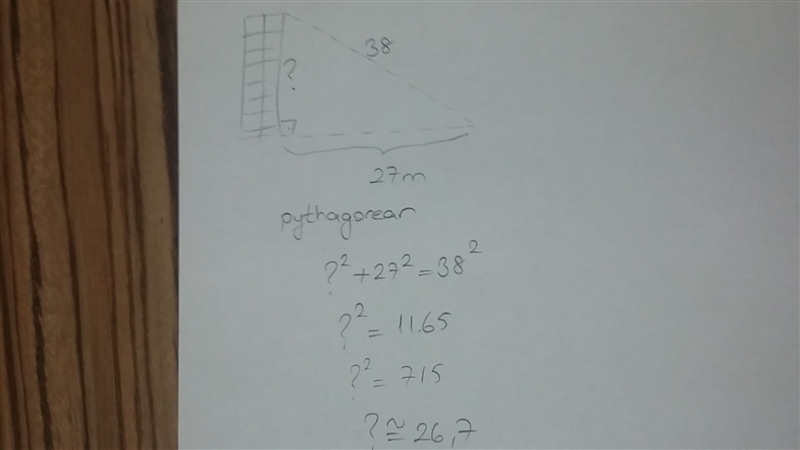 38
?
27m
pythagorean
?² + 27² = 38²
?² = 11.65
?² = 715
? ≅ 26,7